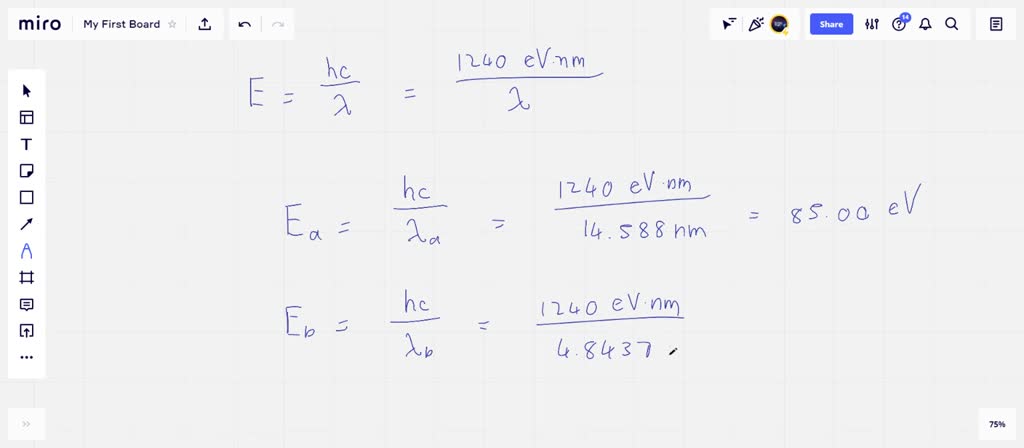 miro My First Board Share 14
E = hc/λ = 1240 eV·nm/λ
T
E_a = hc/λ_a = 1240 eV·nm/14.588 nm = 85.00 eV
E_b = hc/λ_b = 1240 eV·nm/4.8437
75%